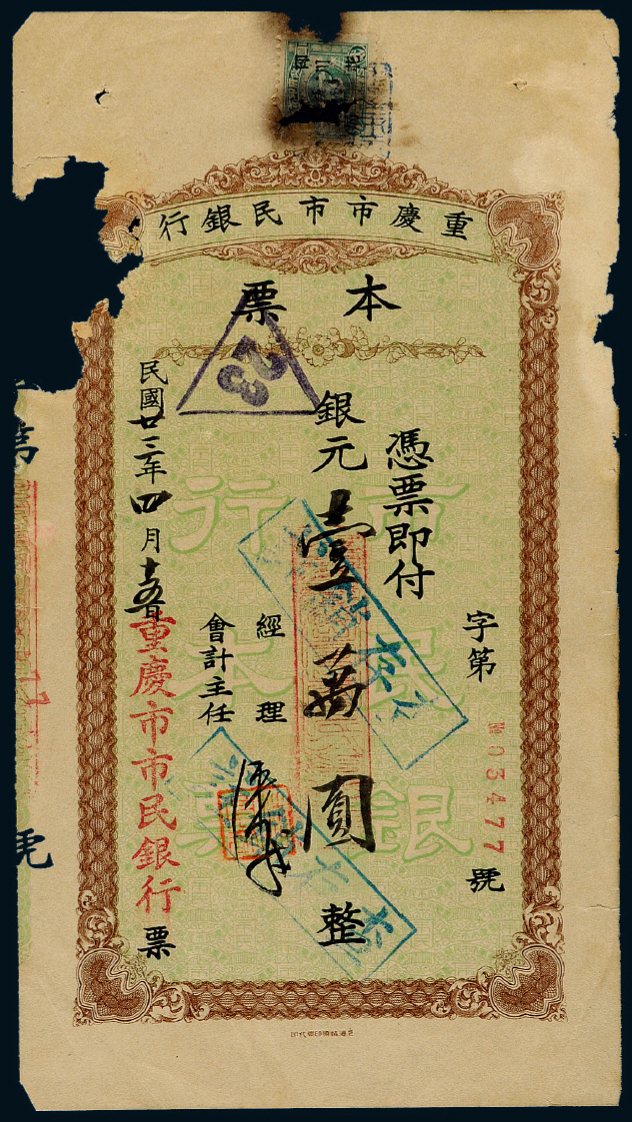 重慶市市民銀行
本票
憑票即付
銀元壹萬圓整
字第
№035477
號
經理
會計主任
民國廿三年四月十五日
重慶市市民銀行
票
23
市民銀行本票
第
號